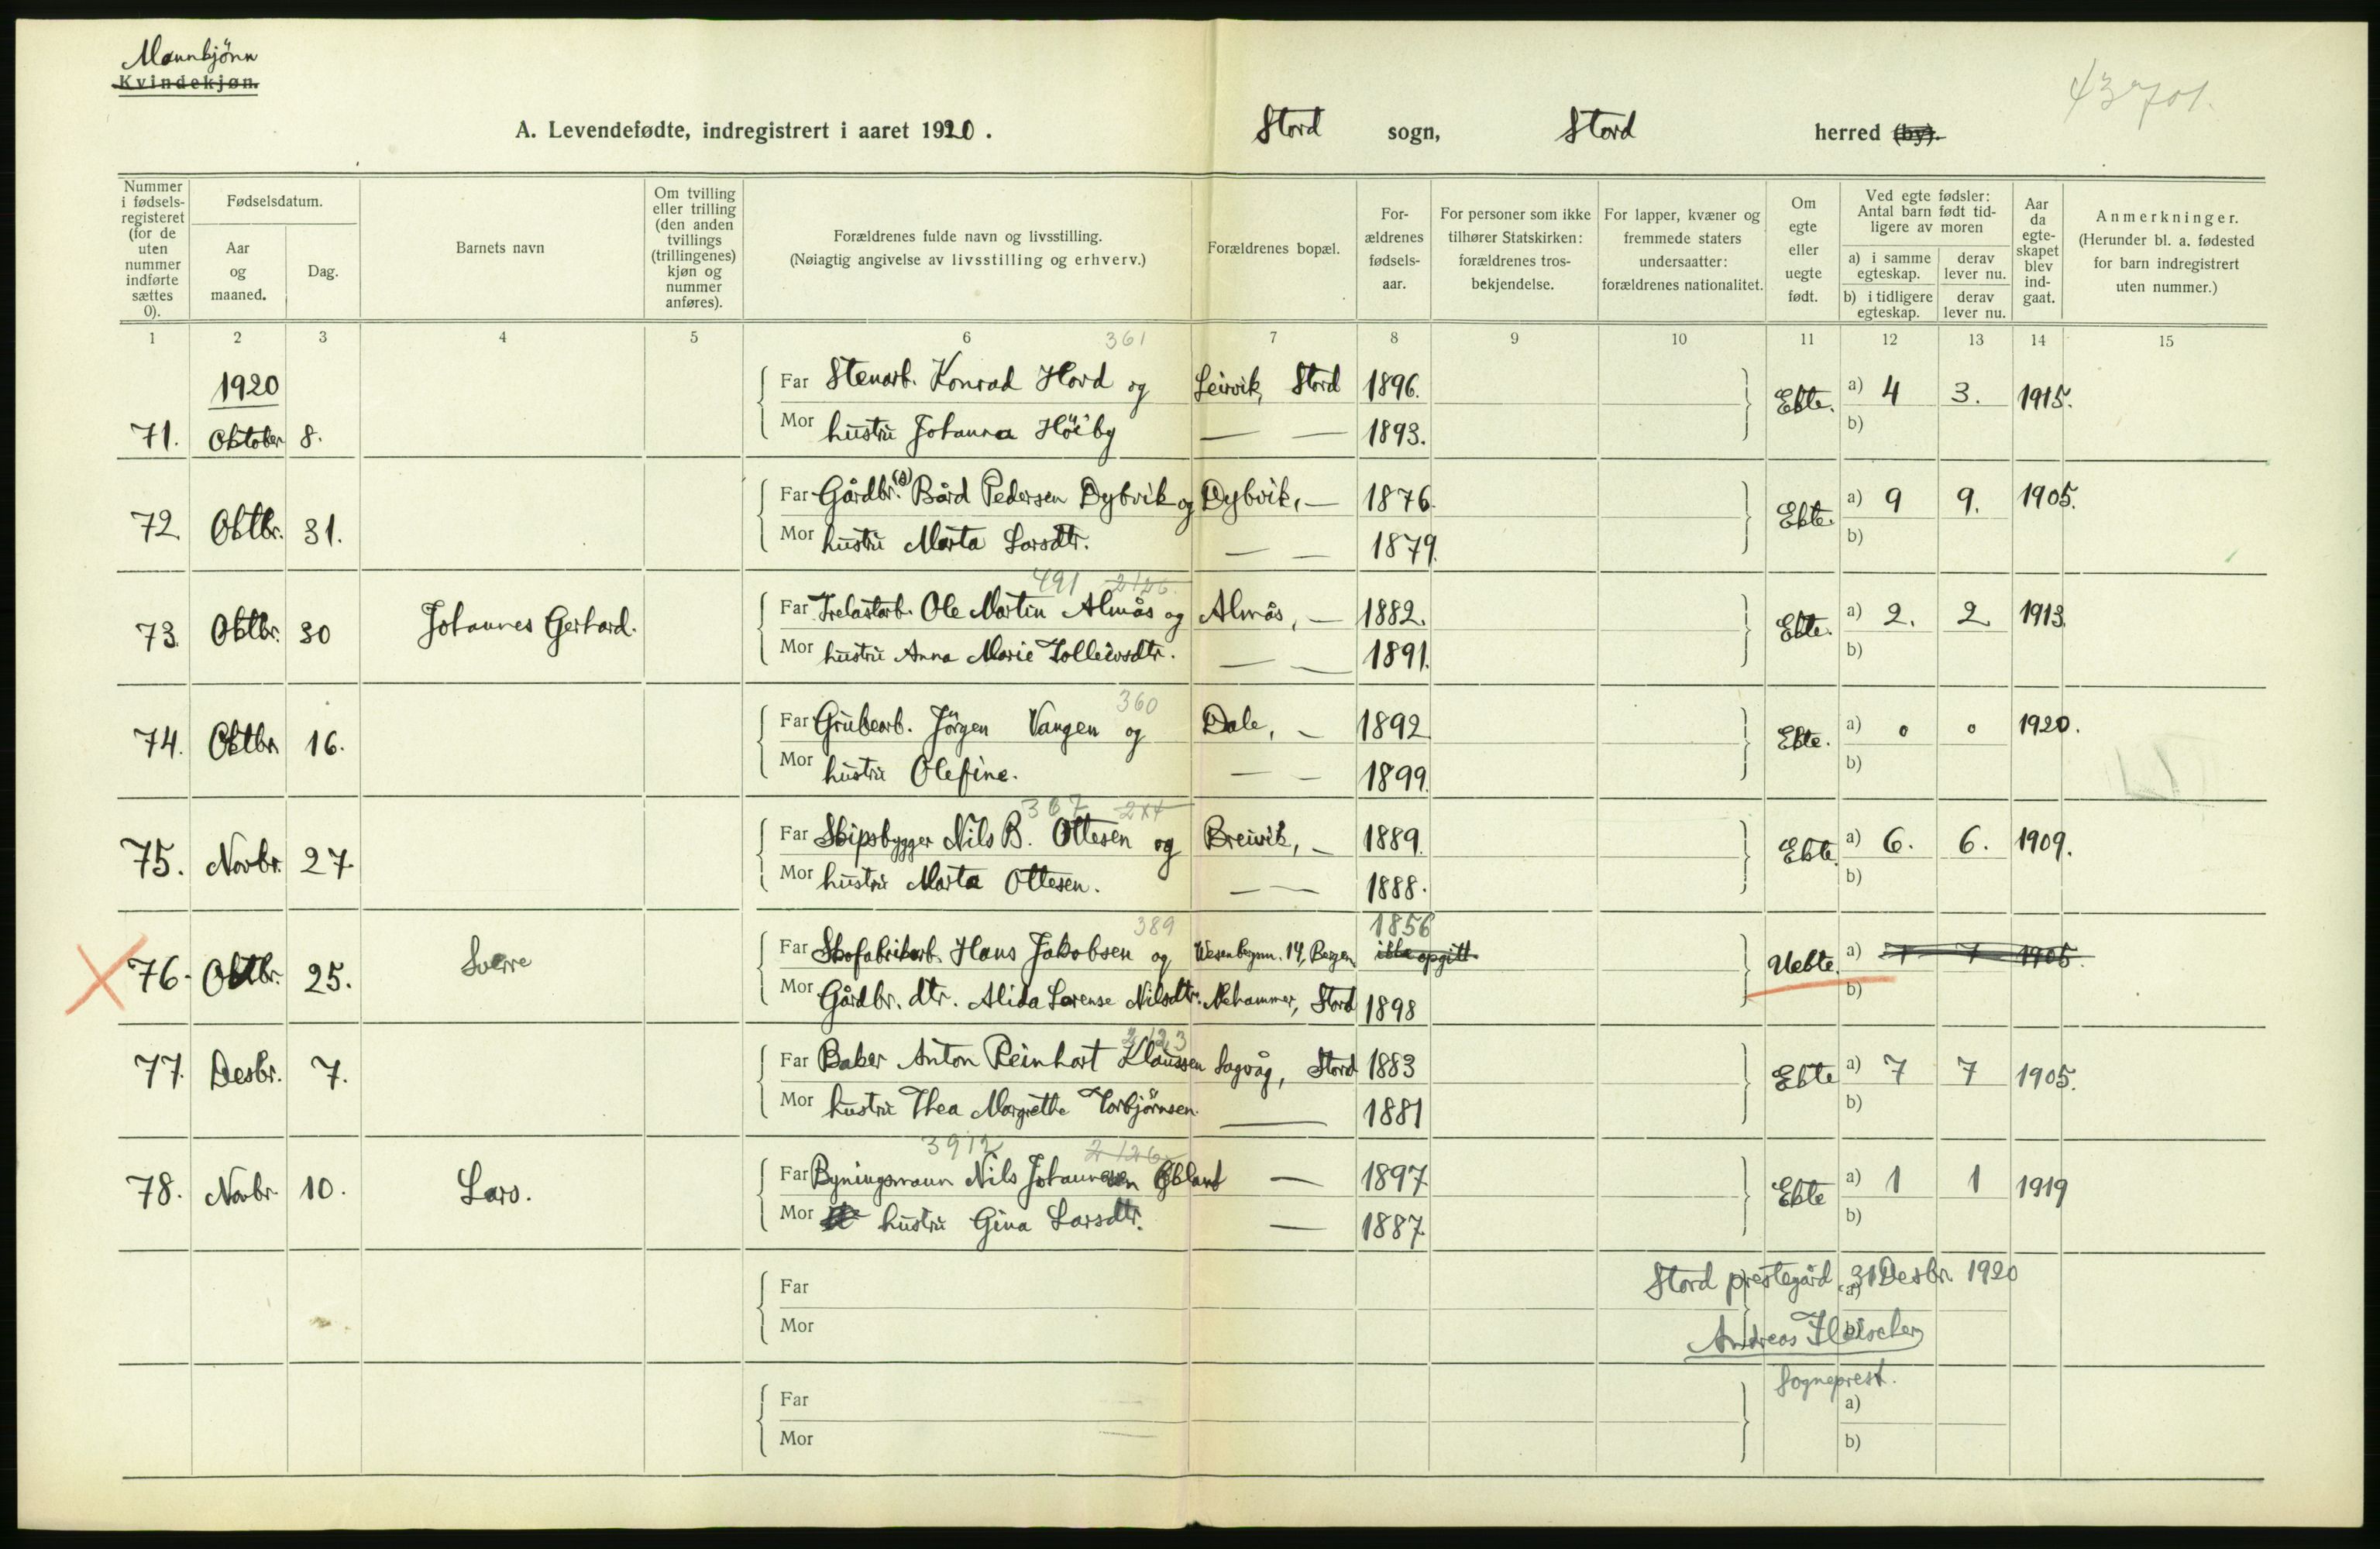 Mannkjönn
Kvindekjøn.
43701.
A. Levendefødte, indregistrert i aaret 1920.
Stord sogn, Stord herred (by).
Nummer i fødsels-registeret (for de uten nummer indførte sættes 0).
Fødselsdatum.
Aar og maaned.
Dag.
Barnets navn
Om tvilling eller trilling (den anden tvillings (trillingenes) kjøn og nummer anføres).
Forældrenes fulde navn og livsstilling.
(Nøiagtig angivelse av livsstilling og erhverv.)
Forældrenes bopæl.
For-ældrenes fødsels-aar.
For personer som ikke tilhører Statskirken: forældrenes tros-bekjendelse.
For lapper, kvæner og fremmede staters undersaatter: forældrenes nationalitet.
Om egte eller uegte født.
Ved egte fødsler: Antal barn født tid-ligere av moren
a) i samme egteskap. derav lever nu.
b) i tidligere egteskap. derav lever nu.
Aar da egte-skapet blev ind-gaat.
Anmerkninger.
(Herunder bl. a. fødested for barn indregistrert uten nummer.)
1 2 3 4 5 6 7 8 9 10 11 12 13 14 15
361
1920
Far Stenarb. Konrad Hovd og Leirvik, Stord 1896. Ekte. a) 4 3. 1915.
71. Oktober 8. Mor hustru Johanna Höiby — — 1893. b)
Far Gårdbr.(s) Bård Pedersen Dybvik og Dybvik, — 1876. a) 9 9. 1905.
72. Oktbr. 31. Mor hustru Marta Larsdtr. — — 1879. Ekte. b)
491 2126
Far Trelastarb. Ole Martin Almås og Almås, — 1882. a) 2. 2 1913.
73. Oktbr. 30 Johannes Gerhard. Mor hustru Anna Marie Tolleivsdtr. — — 1891. Ekte. b)
360
Far Grubearb. Jörgen Vangen og Dale, — 1892 a) 0 0 1920.
74. Oktbr. 16. Mor hustru Olefine. — — 1899. Ekte. b)
367 244
Far Skipsbygger Nils B. Ottesen og Breivik, — 1889. a) 6. 6. 1909.
75. Novbr. 27. Mor hustru Marta Ottesen. — — 1888. Ekte. b)
389 1856
Far Skofabrikarb. Hans Jakobsen og Wesenbergsm. 14, Bergen ikke opgitt a) 7 7 1905.
76. Oktbr. 25. Sverre Mor Gårdbr. dtr. Alida Lorense Nilsdtr. Aehammer, Stord 1898 Uekte. b)
2123
Far Baker Anton Reinhart Klaussen Sagvåg, Stord 1883 a) 7 7 1905.
77. Desbr. 7. Mor hustru Thea Margrethe Torbjörnsen. — 1881 Ekte b)
3912 2126
Far Byningsmann Nils Johannesen — 1897 a) 1 1 1919
78. Novbr. 10. Lars. Mor hustru Gina Larsdtr. — 1887. Ekte b)
Far Stord prestegård, 31 Desbr. 1920 a)
Mor Andreas Fleischer b)
Sogneprest.
Far a)
Mor b)